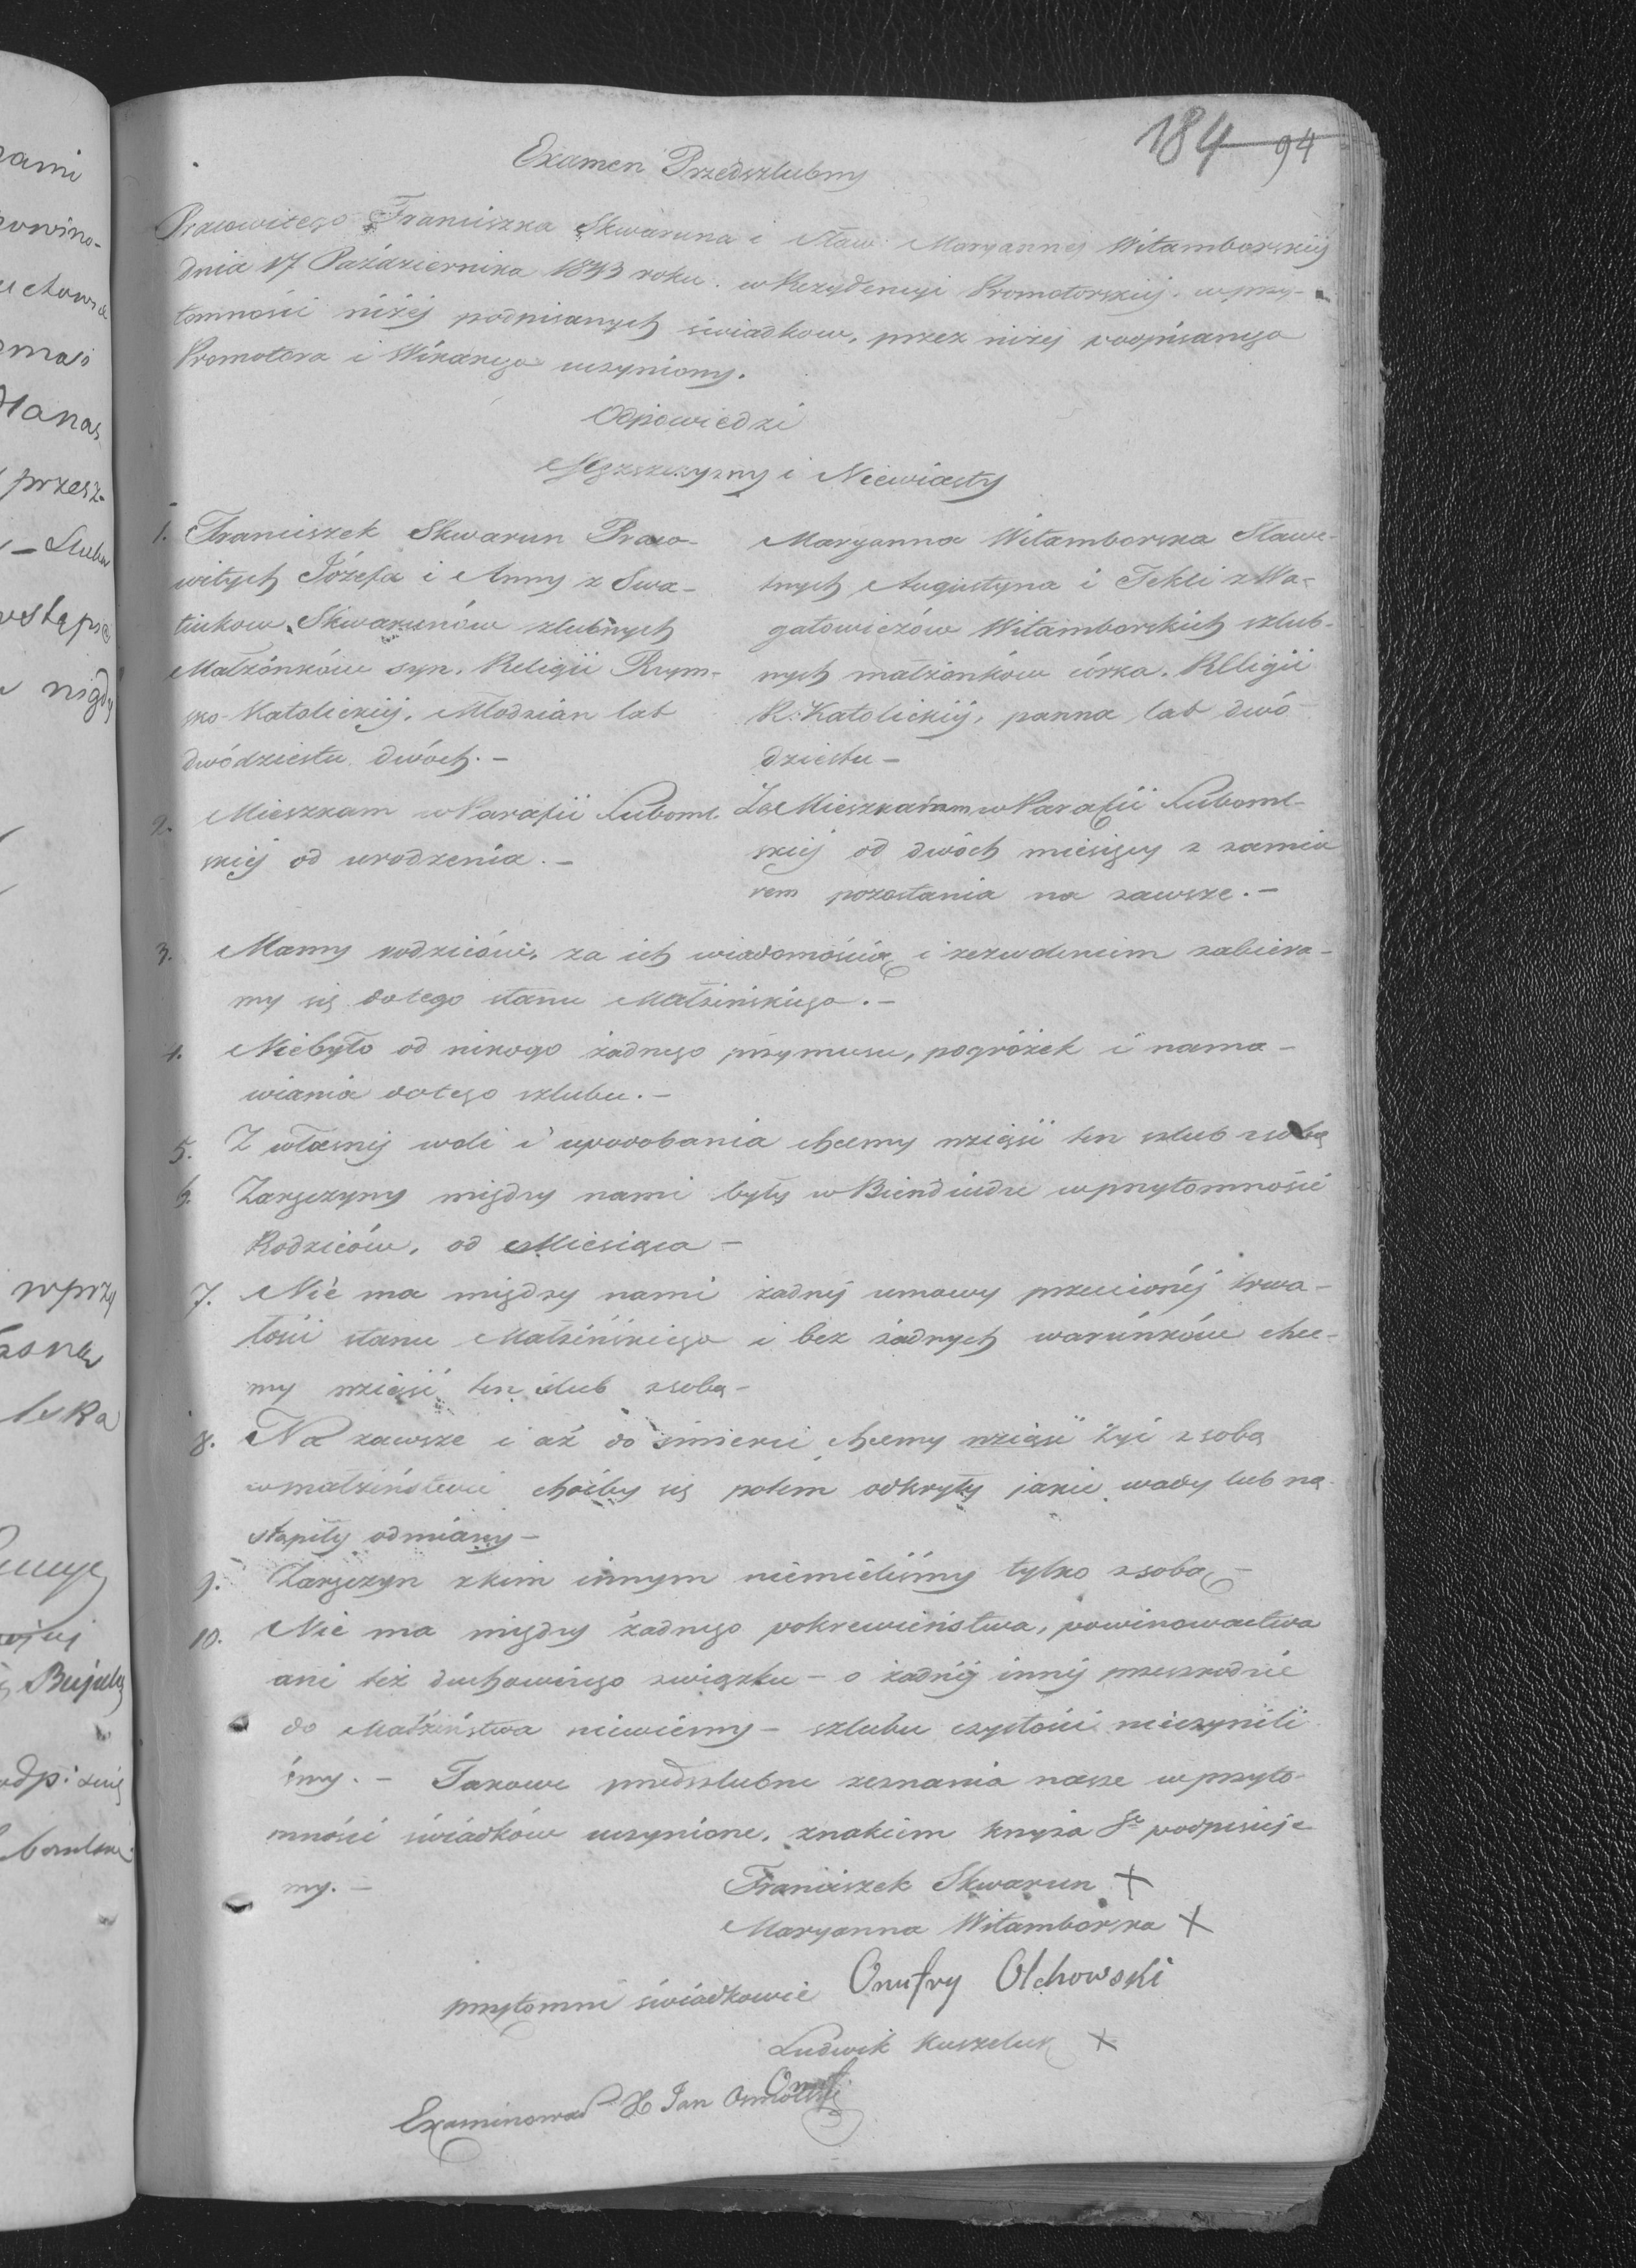 184 94
Examen Przedszlubny
Pracowitego Franciszka Skwaruna i Sław: Maryanny Witamborskiej
dnia 17 Października 1843 roku. w Rezydencyi Promotorskiej. w przy-
tomności niżej podpisanych świadkow, przez niżej podpisanego
Promotora i Wikarego uczyniony.
Odpowiedzi
Męzszczyzny i Niewiasty
1. Franciszek Skwarun Praco-
witych Józefa i Anny z Swa-
tiukow Skwarunów szlubnych
Małżónków syn. Religii Rzym-
sko-Katolickiej. Młodzian lat
dwódziestu dwóch. –
Maryanna Witamborska Sławe-
tnych Augustyna i Tekli z Wa-
gatowiczów Witamborskich szlub-
nych małżonków córka. Religii
R: Katolickiej, panna lat dwó
dziestu –
2. Mieszkam w Parafii Luboml-
skiej od urodzenia. –
Mieszkam w Parafii Luboml-
skiej od dwóch miesięcy z zamia
rem pozostania na zawsze. –
3. Mamy rodziców, za ich wiadomością i zezwoleniem zabiera-
my się do tego stanu Małżeńskiego. –
4. Niebyło od nikogo żadnego przymusu, pogróżek i nama-
wiania do tego szlubu. –
5. Z własnej woli i upodobania chcemy wziąść ten szlub z sobą
6. Zaręczyny między nami były w w przytomności
Rodziców, od Miesiąca –
7. Nie ma między nami żadnej umowy przeciwnéj trwa-
łości stanu Małżeńskiego i bez żadnych warunków chce-
my wziąść ten ślub z sobą –
8. Na zawsze i aż do śmierci chcemy wziąść żyć z sobą
w małżeństwie choćby się potem odkryły jakie wady lub na-
stąpiły odmiany –
9. Zaręczyn z kim innym niemieliśmy tylko z sobą –
10. Nie ma między żadnego pokrewieństwa, powinowactwa
ani też duchownego związku – o żadnéj innéj przeszkodzie
do Małżeństwa niewiemy – szlubu czystości nieczynili
śmy. – Takowe przedszlubne zeznania nasze w przyto-
mności świadków uczynione, znakiem krzyża Sº podpisuje
my. –
Franciszek Skwarun +
Maryanna Witamborska +
przytomni świadkowie Onufry Olchowski
Ludwik Kuszeluk +
Examinował X Jan